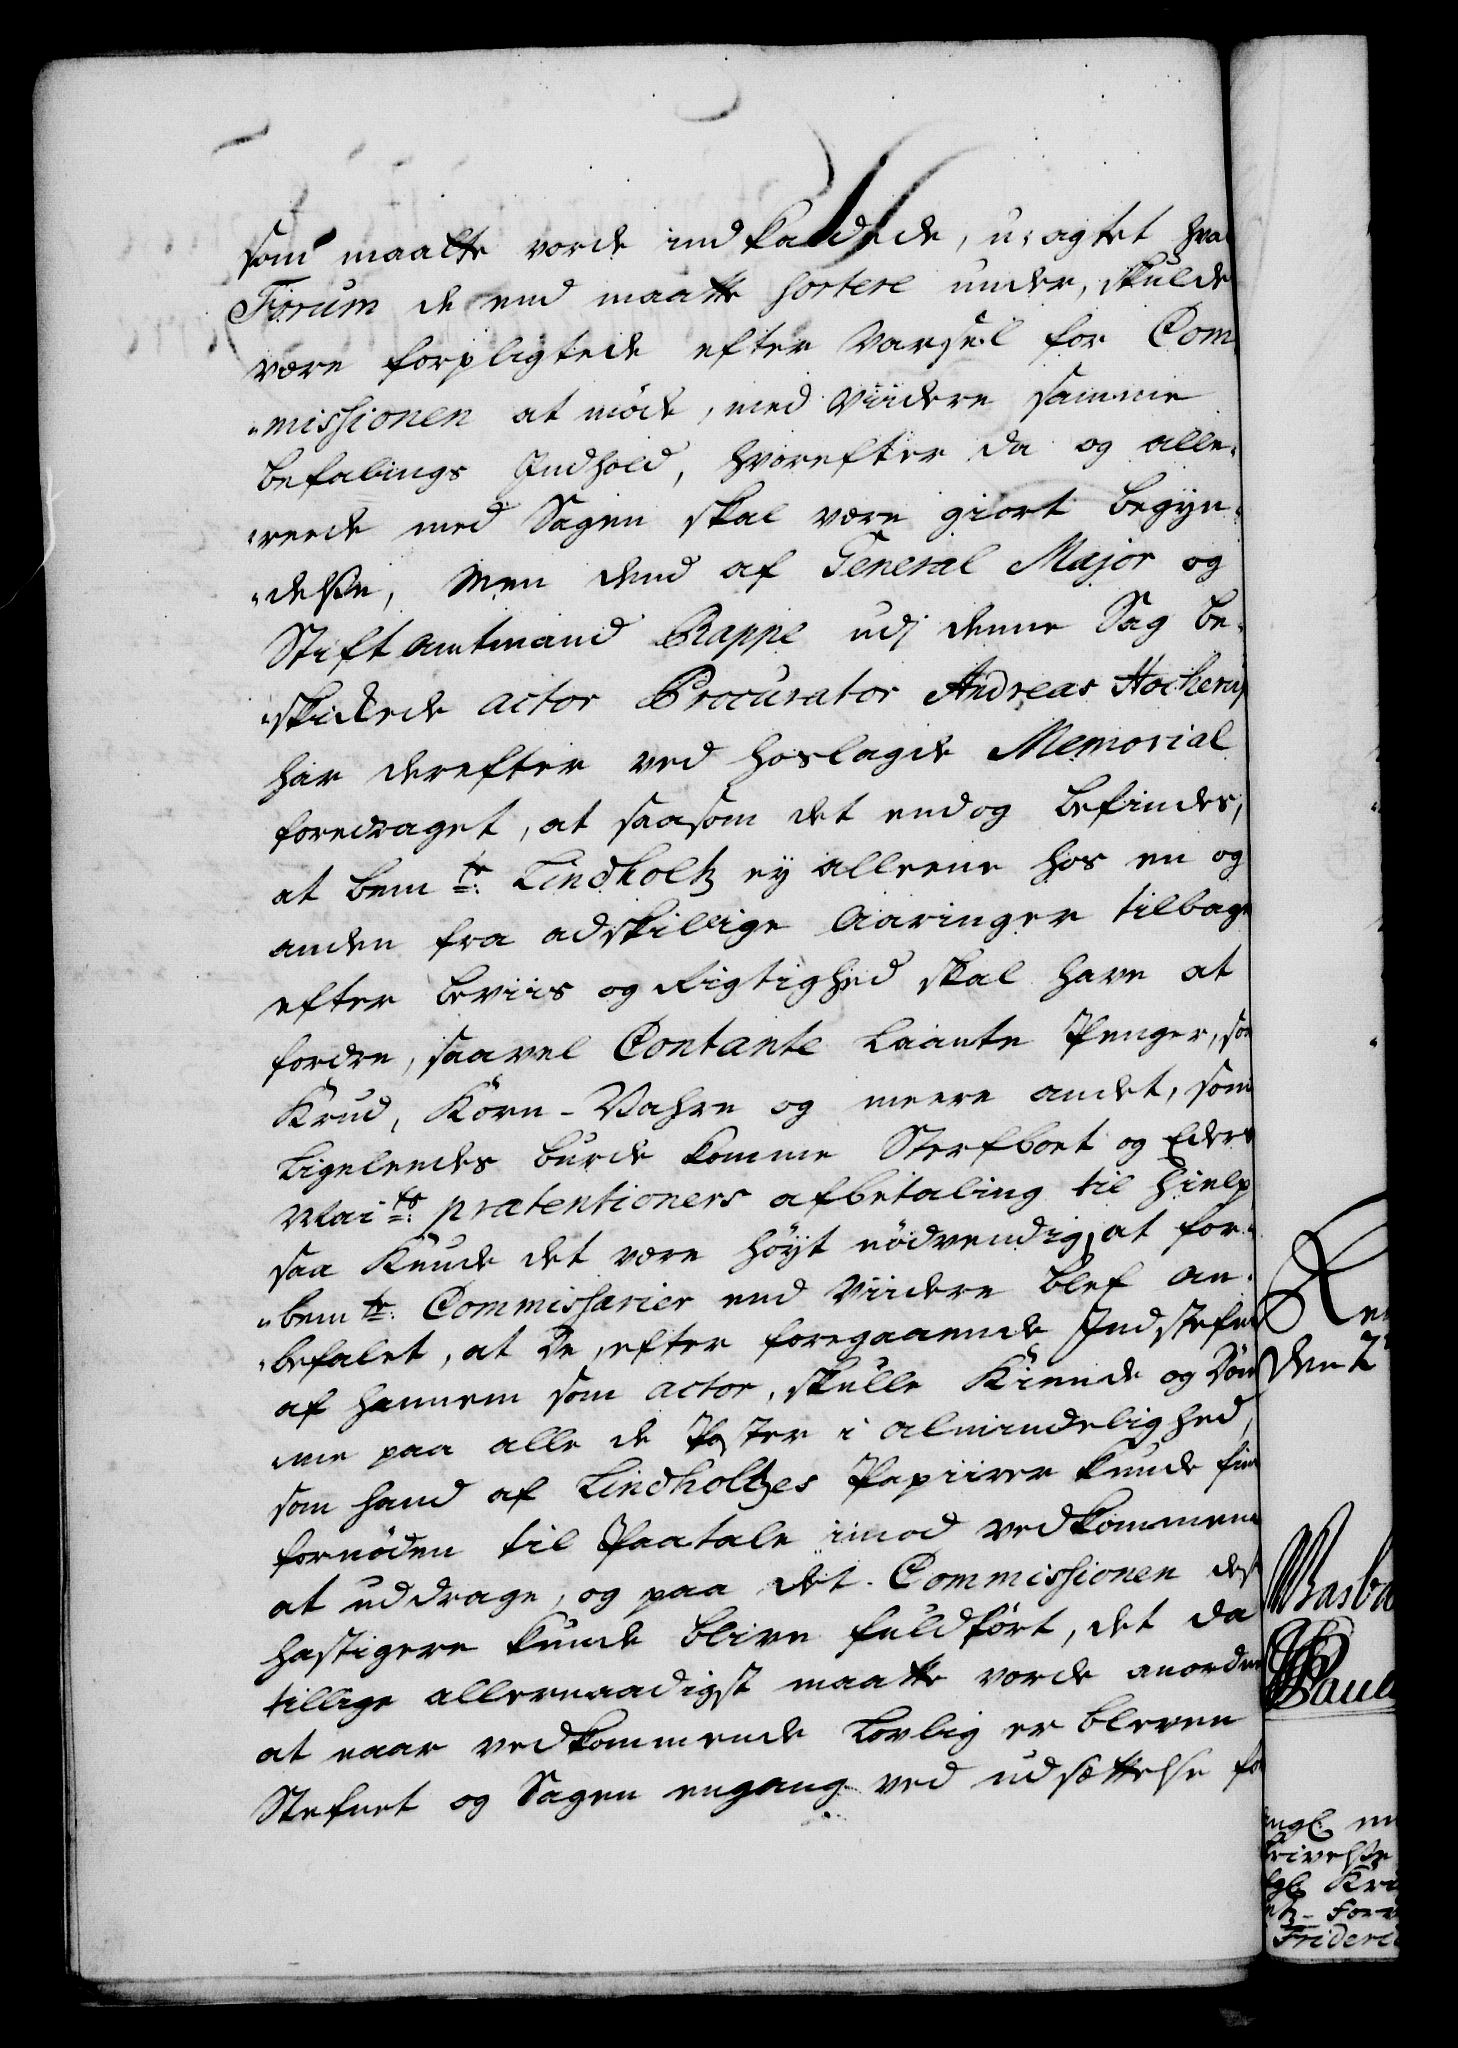 som maatte vorde indkaldede, u-agtet hva
Forum de end maatte sortere under, skulde
være forpligtede efter Varsel for Com
"missionen at møde, med Viidere samme
befalings Indhold, hvorefter da og alle-
"reede med Sagen skal være giort begyn-
"delse, Men dend af General Major og
Stiftamtmand Rappe udj denne Sag be-
"skikkede actor Procurator Andreas
har derefter ved hoslagde Memorial
foredraget, at saasom det endog befindes,
at bemte: Lindholtz ey alleene hos en og
anden fra adskillige Aaringer tilbage
efter beviis og Rigtighed skal have at
fordre, saavel Contante laante Penger, som
Krud, Korn-Vahre og meere andet, som
ligeleedes burde komme Sterfboet og Eders
Maits: prætentioners afbetaling til hielp
saa kunde det være høyt nødvendig, at for-
"bemte: Commissarier end Viidere blef an-
"befalet, at De, efter foregaaende Indstefn
af hannem som actor, skulle Kiende og Døm
"me paa alle de Poster i almindelighed,
som hand af Lindholtzes Papiirer kunde fin
fornøden til Paatale imod vedkommen
at uddrage, og paa det Commissionen des
hastigere kunde blive fuldført, det da
tillige allernaadigst maatte vorde anordn
at naar vedkommende Lovlig er bleven
Stefnet og Sagen engang ved udsættelse fo
den 2